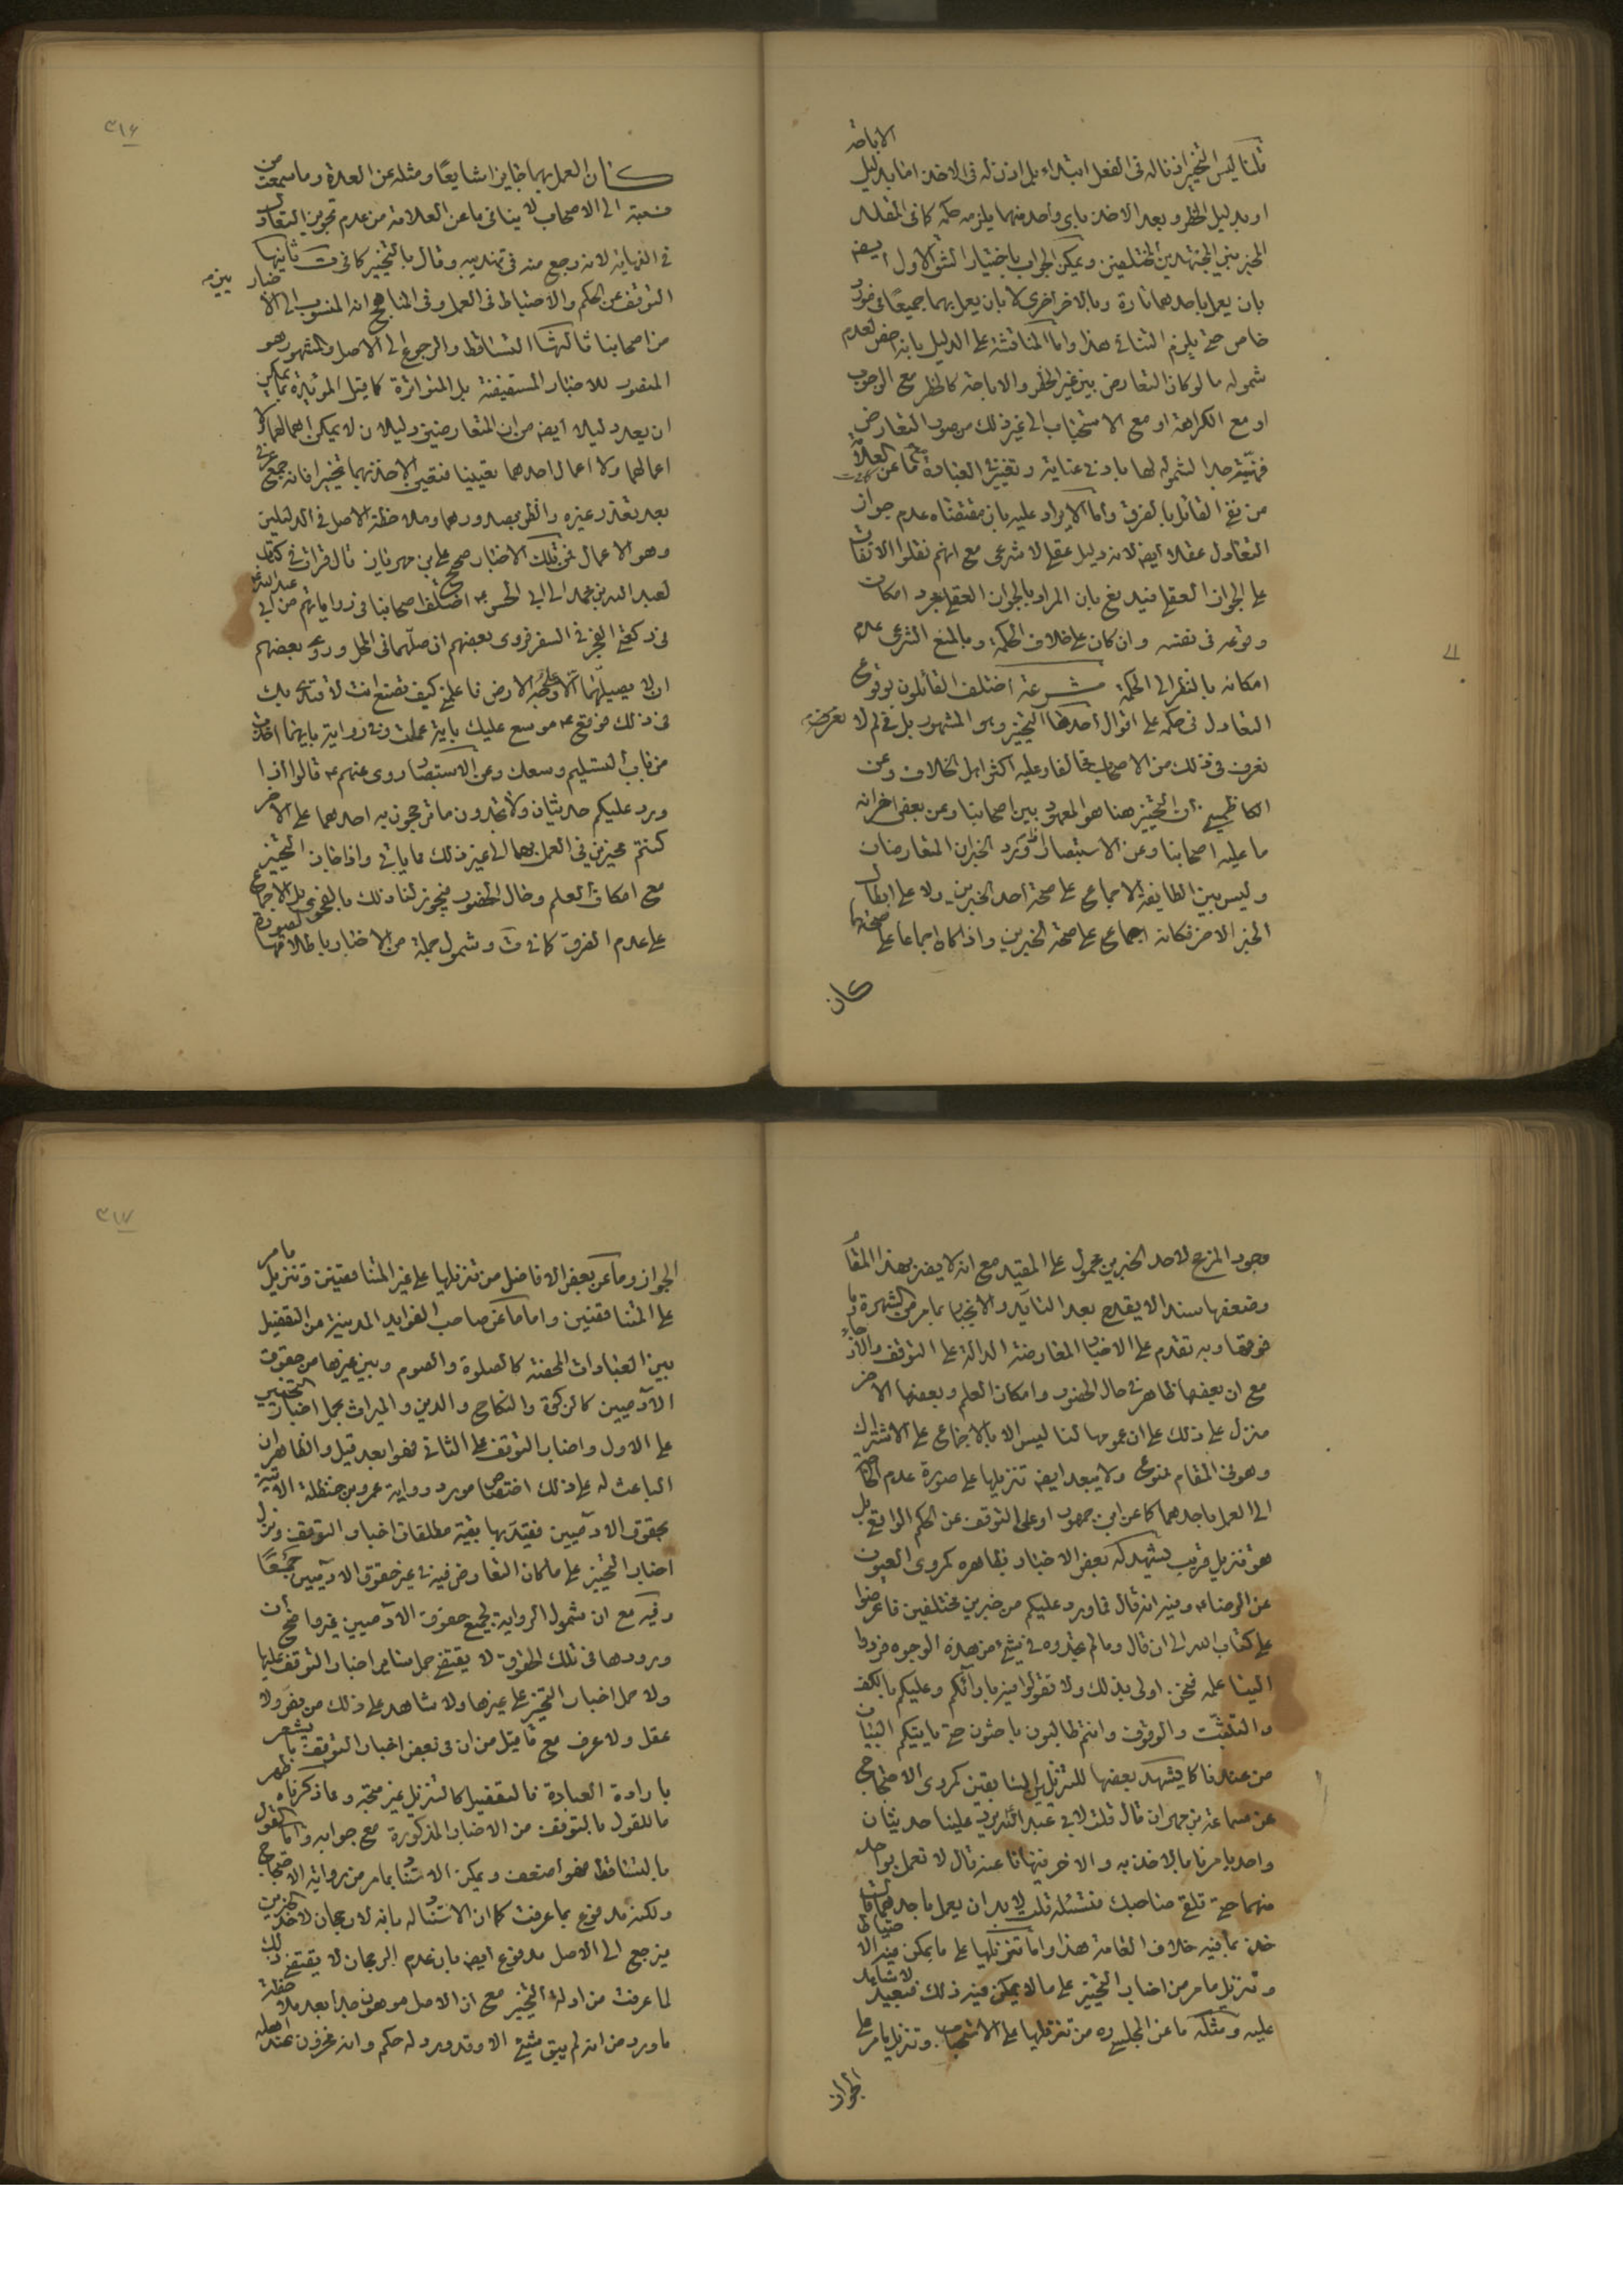 قلنا ليس التخيير اذنا له فى الفعل ابتداء بل اذن له فى الاخذ اما بدليل الاباحة
او بدليل الحظر وبعد الاخذ باى واحد منهما يلزمه حكمه كما فى المقلد
المخير بين المجتهدين المختلفين ويمكن الجواب باختيار الشق الاول ايضه
بان يعمل باحدهما تارة وبالاخر اخرى لا بان يعمل بهما جميعا فى مورد
خاص حتى يلزم التنافى هذا واما المناقشة على الدليل بانه اخص لعدم
شموله ما لو كان التعارض بين غير الحظر والاباحة كالحظر مع الوجوب
او مع الكراهة او مع الاستحباب الى غير ذلك من صور التعارض
لشموله لها بادنى عناية وتغيير العبادة عن العلامة
من نفى القائل بالفرق واما الايراد عليه بان مقتضاه عدم جواز
التعادل عقلا ايضه لانه دليل عقلى لا شرعى مع انهم نقلوا الاتفاق
على الجواز العقلى فيدفع بان المراد بالجواز العقلى مجرد امكان
وقوعه فى نفسه وان كان على خلاف الحكمة وبالمنع الشرعى عدم
امكانه بالنظر الى الحكمة مشرعة اختلف القائلون بوقوع
التعادل فى حكمه على اقوال احدها التخيير وهو المشهور بل فى لم لا نعرف
نعرف فى ذلك من الاصحاب مخالفا وعليه اكثر اهل الخلاف وعن
الكاظمى ان التخيير هنا هو المعمول بين اصحابنا وعن بعض اخر انه
ما عليه اصحابنا وعن الاستبصار اذا ورد الخبران المتعارضان
وليس بين الطايفة الاجماع على صحة احد الخبرين ولا على ابطال
الخبر الاخر فكانه اجماع على صحة الخبرين واذا كان اجماعا على صحتهما
كان
٣١٦
كان العمل بهما جايزا شايعا ومثله عن العدة وما سمعت من
نسبته الى الاصحاب لا ينافى ما عن العلامة من عدم تجويز التعادل
فى النهاية لانه رجع منه فى تهذيبه وقال بالتخيير كما فى ثانيها
التوقف عن الحكم والاحتياط فى العمل وفى المناهج انه المنسوب الى الاخباريين
من اصحابنا ثالثها التساقط والرجوع الى الاصل والمشهور هو
المنصور للاخبار المستفيضة بل المتواترة كما قيل المؤيدة بما يمكن
ان يعد دليلا ايضه من ان المتعارضين دليلان لا يمكن اهمالهما ولا
اعمالهما ولا اعمال احدهما تعيينا فتعين الاخذ بهما تخييرا فانه جمع عرفى
بعد تعذر غيره والظن بصدورهما وملاحظة الاصل فى الدليلين
وهو الاعمال فمن تلك الاخبار صحيح على بن مهزيار قال قرات فى كتاب
لعبد الله بن محمد الى ابى الحسن ع اختلف اصحابنا فى رواياتهم عن ابى عبد الله ع
فى ركعتى الفجر فى السفر فروى بعضهم ان صلهما فى المحمل وروى بعضهم
ان لا يصليهما الا على وجه الارض فاعلمنى كيف تصنع انت لاقتدى بك
فى ذلك فوقع ع موسع عليك باية عملت وفى رواية بايهما اخذت
من باب التسليم وسعك وعن الاستبصار روى عنهم ع قالوا اذا
ورد عليكم حديثان ولا تجدون ما ترجحون به احدهما على الاخر
كنتم مخيرين فى العمل بهما الى غير ذلك مما ياتى واذا جاز التخيير
مع امكان العلم وحال الحضور فيجوز لنا ذلك بالفحوى بل الاجماع
على عدم الفرق كما فى ق وشمول جملة من الاخبار باطلاقها لصورة
وجود المرجح لاحد الخبرين محمول على المقيد مع انه لا يضر بهذا المقام
وضعفها سندا لا يقدح بعد التايد والانجبار بما مر من الشهرة وما
فوقها وبه تقدم على الاخبار المعارضة الدالة على التوقف والارجاء
مع ان بعضها ظاهر فى حال الحضور وامكان العلم وبعضها الاخر
منزل على ذلك على ان عمومها لنا ليس الا بالاجماع على الاشتراك
وهو فى المقام ممنوع ولا يبعد ايضه تنزيلها على صورة عدم الحاجة
الى العمل باحدهما كما عن ابن جمهور او على التوقف عن الحكم الواقعى بل
هو تنزيل قريب يشهد له بعض الاخبار بظاهره كمروى العيون
عن الرضا ع وفيه انه قال فما ورد عليكم من خبرين مختلفين فاعرضوا
على كتاب الله الى ان قال وما لم تجدوه فى شىء من هذه الوجوه فردوا
الينا علمه فنحن اولى بذلك ولا تقولوا فيه بارآئكم وعليكم بالكف
والتثبت والوقوف وانتم طالبون باحثون حتى ياتيكم البيان
من عندنا كما يشهد بعضها للتنزيلين السابقين كمروى الاحتجاج
عن سماعة بن مهران قال قلت لابى عبد الله يرد علينا حديثان
واحد يامرنا بالاخذ به والاخر ينهانا عنه قال لا تعمل بواحد
منهما حتى تلقى صاحبك فتسئله قلت لا بد ان يعمل باحدهما قال
خذ بما فيه خلاف العامة هذا واما تنزيلها على ما يمكن فيه الاحتياط
وتنزيل ما مر من اخبار التخيير على ما لا يمكن فيه ذلك فبعيد لا شاهد
عليه ومثله ما عن المجلسى ره من تنزيلها على الاستحباب وتنزيل ما مر على
الجواز
٣١٧
الجواز وما عن بعض الافاضل من تنزيلها على غير المتناقضين وتنزيل ما مر
على المتناقضين واما ما عن صاحب الفوايد المدنية من التفصيل
بين العبادات المحضة كالصلوة والصوم وبين غيرها من حقوق
الآدميين كالزكوة والنكاح والدين والميراث بحمل اخبار التخيير
على الاول واخبار التوقف على الثانى فهو ابعد قيل والظاهر ان
الباعث له على ذلك اختصاص مورد رواية عمرو بن حنظلة الاتية
بحقوق الادميين فقيد بها بقية مطلقات اخبار التوقف ونزل
اخبار التخيير على ما كان التعارض فيه فى غير حقوق الادميين جمعا
وفيه مع ان شمول الرواية لجميع حقوق الادميين غير واضح ان
ورودها فى تلك الحقوق لا يقتضى حمل ساير اخبار التوقف عليها
ولا حمل اخبار التخيير على غيرها ولا شاهد على ذلك من نص ولا
عقل ولا عرف مع ما قيل من ان فى بعض اخبار التوقف ما يشعر
بارادة العبادة فالتفصيل كالتنزيل غير متجه ومما ذكرناه ظهر
ما للقول بالتوقف من الاخبار المذكورة مع جوابه واما القول
بالتساقط فهو اضعف ويمكن الاستناد بما مر من رواية الاحتجاج
ولكنه مدفوع بما عرفت كما ان الاستناد له بانه لا رجحان لاحد الخبرين
فيرجع الى الاصل مدفوع ايضه بان عدم الرجحان لا يقتضى ذلك
لما عرفت من ادلة التخيير مع ان الاصل موهون جدا بعد ملاحظة
ما ورد من انه لم يبق شىء الا وقد ورد له حكم وانه مخزون عند اهله